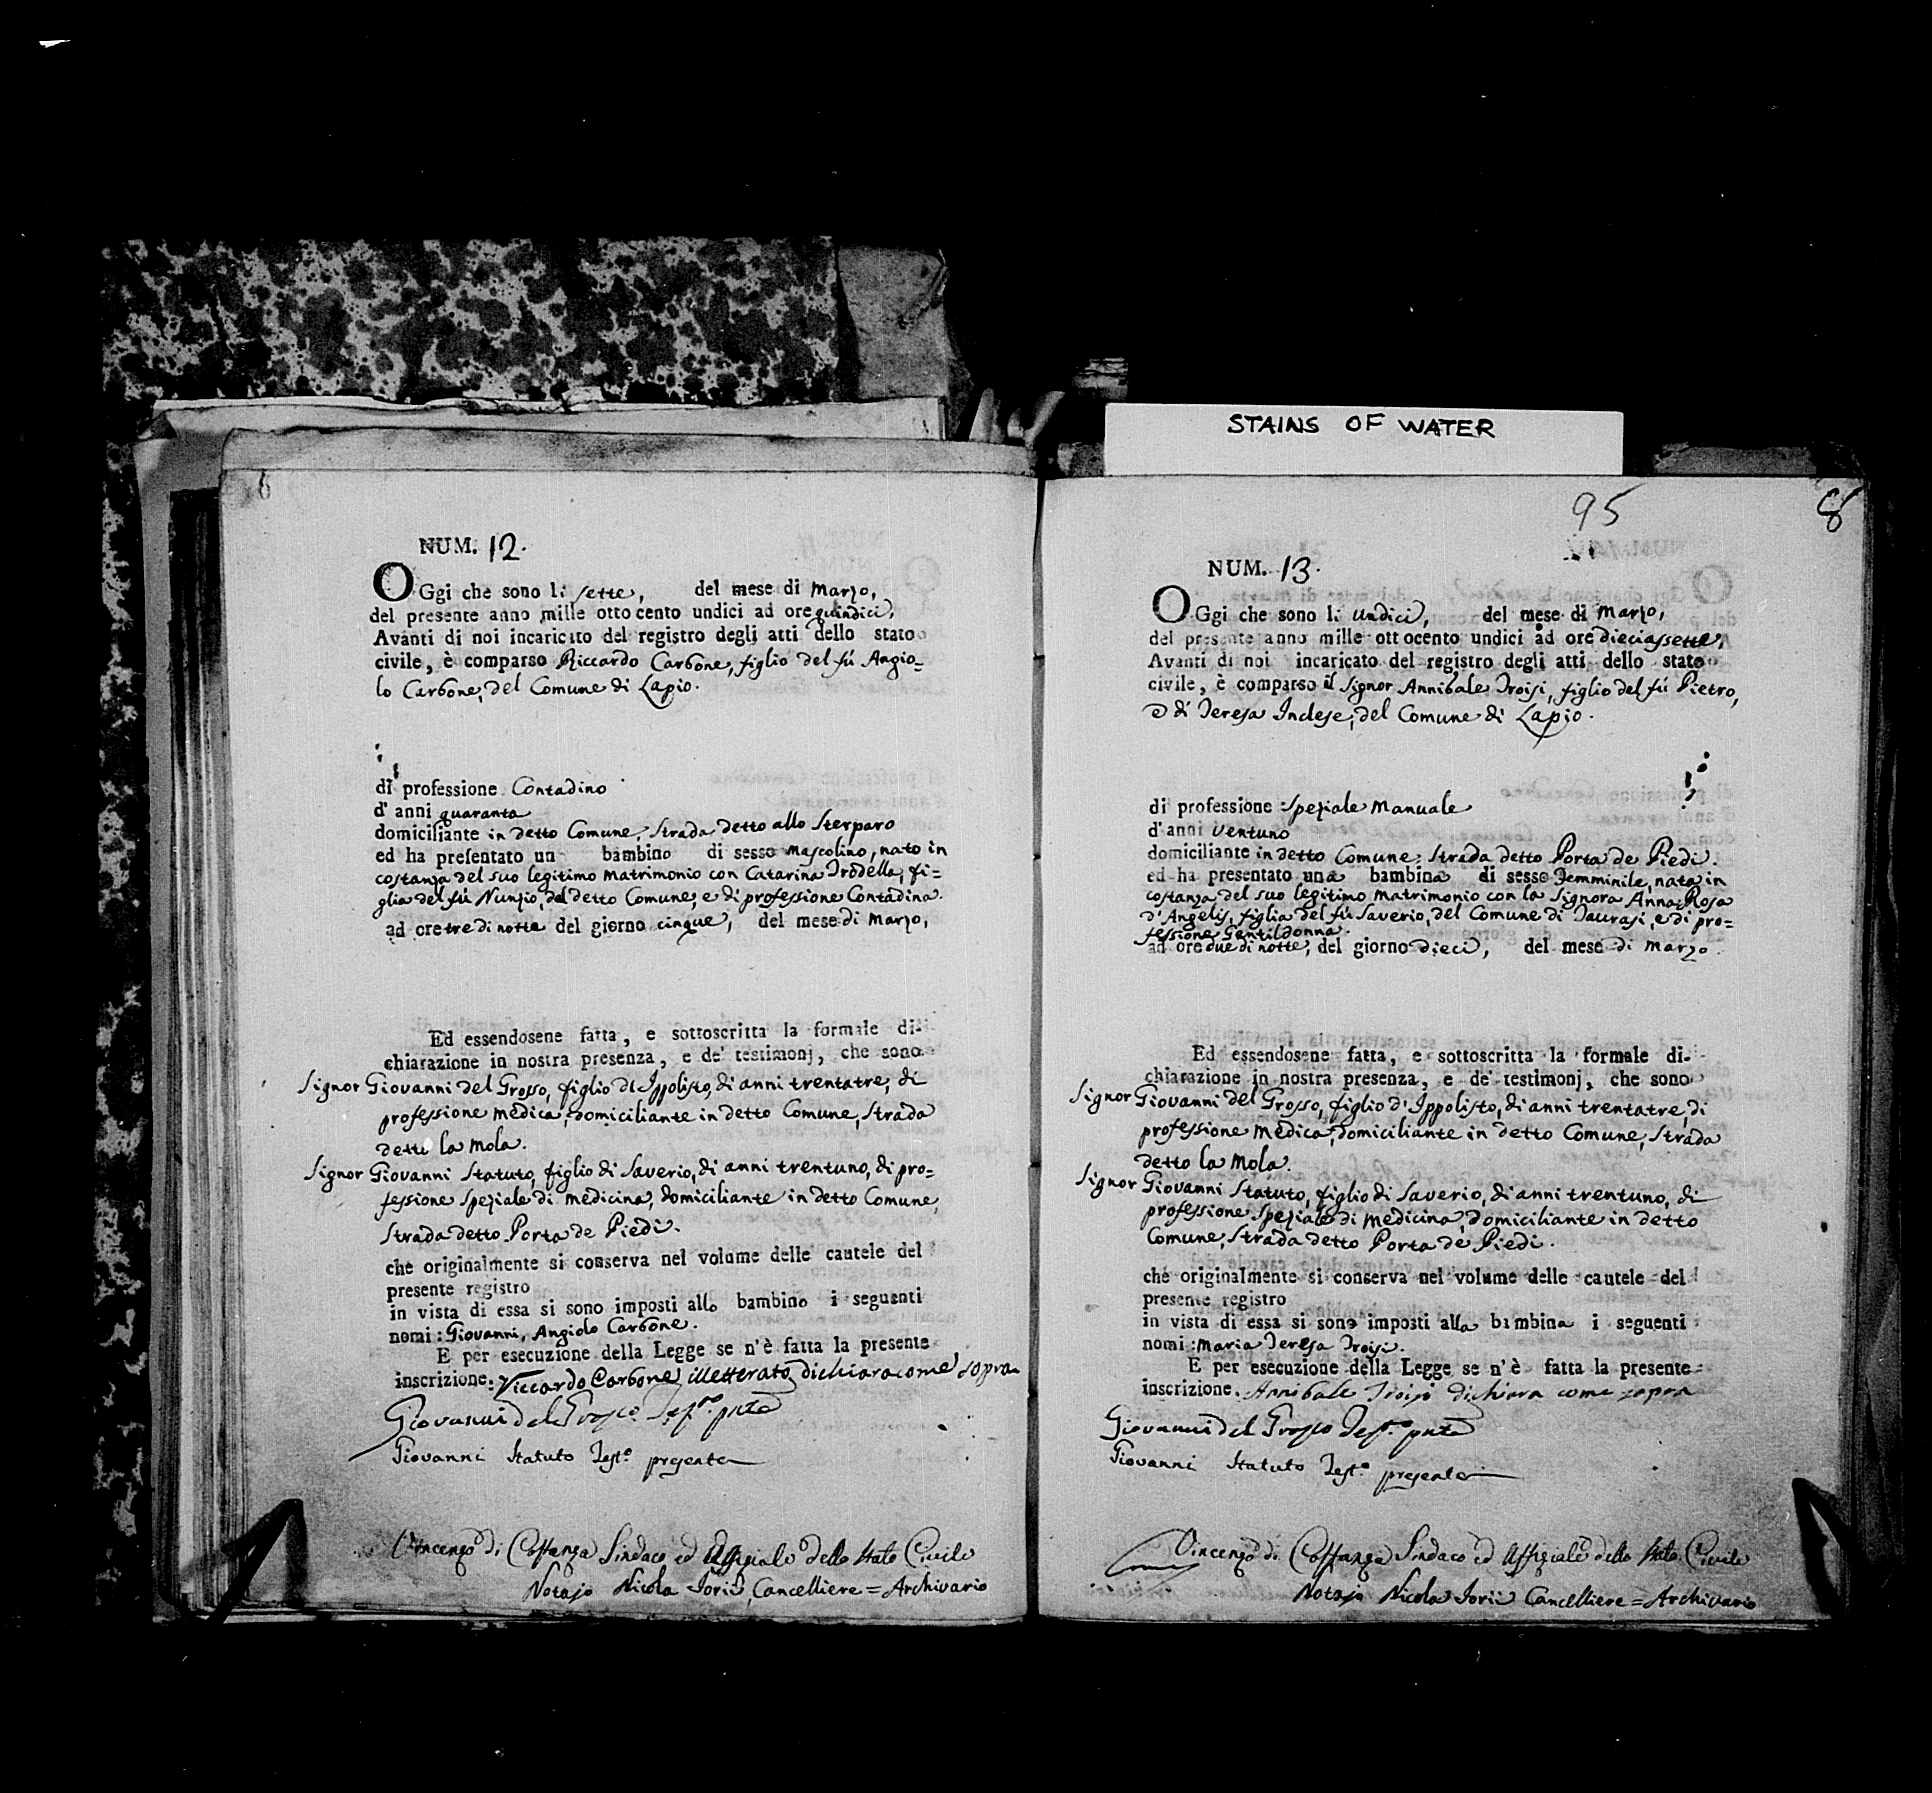 STAINS OF WATER
6
NUM. 12.
OGgi che sono li sette, del mese di Marzo,
del presente anno mille otto cento undici ad ore quindici,
Avanti di noi incaricato del registro degli atti dello stato
civile, è comparso Riccardo Carbone, figlio del fù Angio=
lo Carbone, del Comune di Lapio.
di professione Contadino
d' anni quaranta
domiciliante in detto Comune, Strada detto allo Sterparo
ed ha presentato un bambino di sesso Mascolino, nato in
costanza del suo legitimo matrimonio con Catarina Trodella, fi=
glia del fù Nunzio, del detto Comune, e di professione Contadina.
ad ore tre di notte del giorno cinque, del mese di Marzo,
Ed essendosene fatta, e sottoscritta la formale di-
chiarazione in nostra presenza, e de' testimonj, che sono
Signor Giovanni del Grosso, figlio di Ippolisto, di anni trentatre, di
professione Medica, domiciliante in detto Comune, Strada
detti la Mola.
Signor Giovanni Statuto, figlio di Saverio, di anni trentuno, di pro=
fessione Speziale di medicina, domiciliante in detto Comune,
Strada detto Porta de Piedi.
che originalmente si conserva nel volume delle cautele del
presente registro
in vista di essa si sono imposti allo bambino i seguenti
nomi: Giovanni, Angiolo Carbone.
E per esecuzione della Legge se n'è fatta la presente
inscrizione. Riccardo Carbone illetterato dichiara come sopra
Giovanni del Grosso Test.º pnte
Giovanni Statuto Test.º presente
Vincenzo di Costanza Sindaco ed Uffiziale dello Stato Civile
Notajo Nicola Iorii Cancelliere = Archivario
95
8
NUM. 13.
OGgi che sono li undici, del mese di Marzo,
del presente anno mille ott ocento undici ad ore dieciassette,
Avanti di noi incaricato del registro degli atti dello stato
civile, è comparso il Signor Annibale Troisi, figlio del fù Pietro,
e di Teresa Inclese, del Comune di Lapio.
di professione Speziale Manuale
d' anni Ventuno
domiciliante in detto Comune, Strada detto Porta de Piedi.
ed ha presentato una bambina di sesso Femminile, nata in
costanza del suo legitimo matrimonio con la Signora Anna Rosa
d'Angelis, figlia del fù Saverio, del Comune di Taurasi, e di pro=
fessione Gentildonna.
ad ore due di notte, del giorno dieci, del mese di Marzo
Ed essendosene fatta, e sottoscritta la formale di-
chiarazione in nostra presenza, e de' testimonj, che sono
Signor Giovanni del Grosso, figlio d' Ippolisto, di anni trentatre, di
professione Medica, domiciliante in detto Comune, Strada
detto la Mola.
Signor Giovanni Statuto, figlio di Saverio, di anni trentuno, di
professione Speziale di medicina, domiciliante in detto
Comune, Strada detto Porta de Piedi.
che originalmente si conserva nel volume delle cautele del
presente registro
in vista di essa si sono imposti alla bambina i seguenti
nomi: Maria Teresa Troisi.
E per esecuzione della Legge se n'è fatta la presente
inscrizione. Annibale Troisi dichiara come sopra
Giovanni del Grosso Test.º pnte
Giovanni Statuto Test.º presente
Vincenzo di Costanza Sindaco ed Uffiziale dello Stato Civile
Notajo Nicola Iorii Cancelliere = Archivario